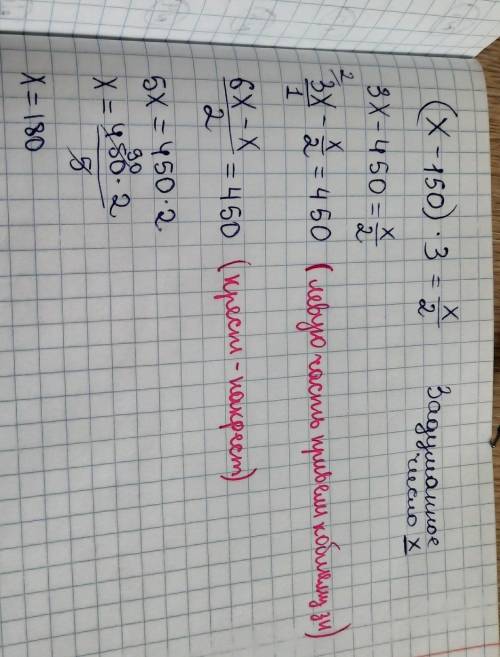 Задуманное
число x
(x - 150) · 3 = x/2
3x - 450 = x/2
2/ 3x/1 - x/2 = 450 (левую часть привели к общему зн)
(6x - x)/2 = 450 (крест-накрест)
5x = 450 · 2
90
x = (450 · 2)/5
x = 180